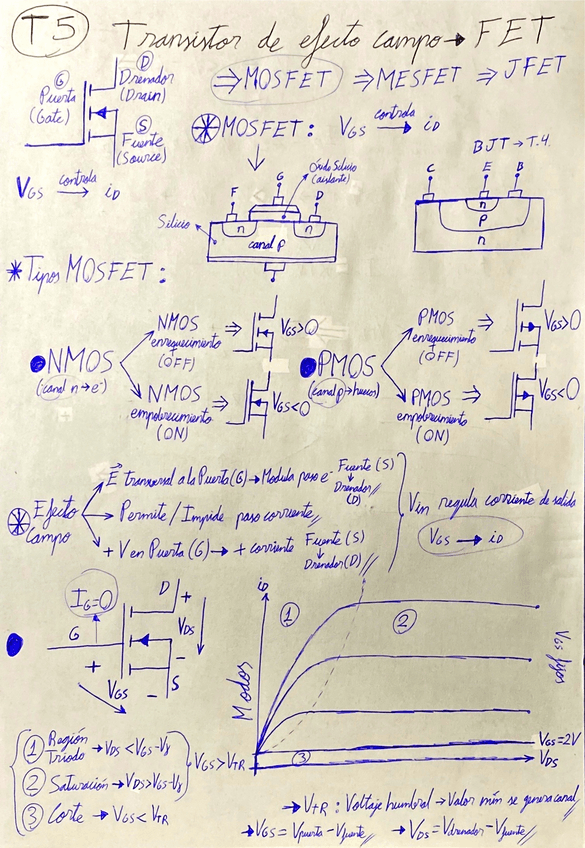 T5 Transistor de efecto campo → FET
G D
Puerta (Gate)
Drenador (Drain)
⇒ MOSFET ⇒ MESFET ⇒ JFET
S
Fuente (Source)
VGS controla → iD
* MOSFET: VGS controla → iD
BJT → T.4.
Óxido Silicio (aislante)
F G D
Silicio
n n
canal p
C E B
n
P
n
* Tipos MOSFET:
• NMOS (canal n → e⁻)
NMOS enriquecimiento (OFF) ⇒ VGS>0
NMOS empobrecimiento (ON) ⇒ VGS<0
• PMOS (canal p → huecos)
PMOS enriquecimiento (OFF) ⇒ VGS>0
PMOS empobrecimiento (ON) ⇒ VGS<0
* Efecto Campo
E transversal a la Puerta (G) → Modula paso e⁻ Fuente (S) ↓ Drenador (D)
→ Permite / Impide paso corriente
+ V en Puerta (G) → + corriente Fuente (S) ↓ Drenador (D)
Vin regula corriente de salida
VGS → iD
IG=0
D +
VDS
G
+
VGS
- S
-
iD
Modos
1 2
3
VGS fijos
VGS=2V
VDS
1 Región Triodo → VDS < VGS-Vγ
2 Saturación → VDS > VGS-Vγ
VGS > VTR
3 Corte → VGS < VTR
→ VTR: Voltaje humbral → Valor mín se genera canal
→ VGS = Vpuerta - Vfuente → VDS = Vdrenador - Vfuente